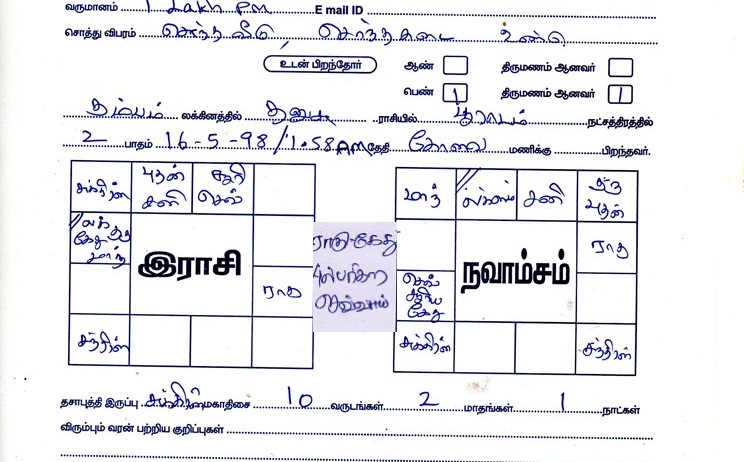 வருமானம் 1 Lakh PM E mail ID
சொத்து விபரம் சொந்த வீடு, சொந்த கடை உண்டு
உடன் பிறந்தோர் ஆண் திருமணம் ஆனவர்
பெண் 1 திருமணம் ஆனவர் 1
கும்பம் லக்கினத்தில் தனுசு ராசியில் பூராடம் நட்சத்திரத்தில்
2 பாதம் 16-5-98 / 1.58 AM தேதி கோவை மணிக்கு பிறந்தவர்.
சுக்கிரன் புதன் சனி சூரி செவ்
லக் குரு கேது மாந்
இராசி
ராகு
சந்திரன்
ராகு-கேது
பரிகார
செவ்வாய்
மாந் லக்னம் சனி குரு புதன்
ராகு
நவாம்சம்
செவ் சூரிய கேது
சுக்கிரன் சந்திரன்
தசாபுத்தி இருப்பு சுக்கிரன் மகாதிசை 10 வருடங்கள் 2 மாதங்கள் 1 நாட்கள்
விரும்பும் வரன் பற்றிய குறிப்புகள்